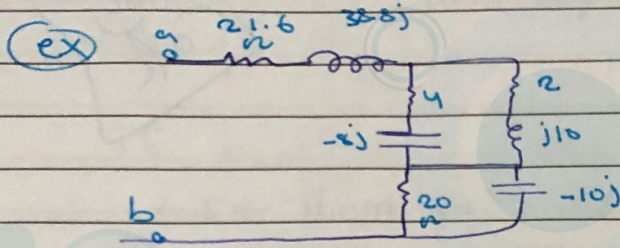 ex
a
21.6
Ω
38.8j
4
2
-8j
j10
20
Ω
-10j
b